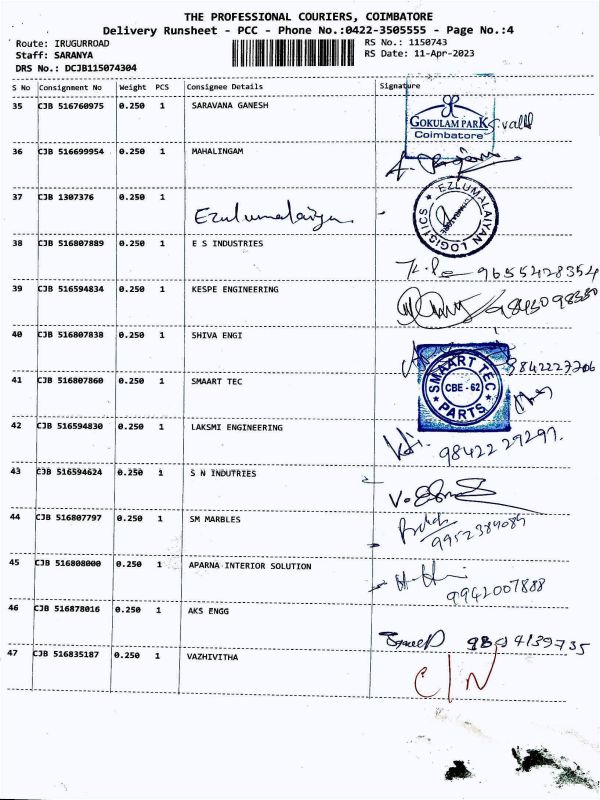 THE PROFESSIONAL COURIERS, COIMBATORE
Delivery Runsheet - PCC - Phone No.:0422-3505555 - Page No.:4
Route: IRUGURROAD
Staff: SARANYA
DRS No.: DCJB115074304
RS No.: 1150743
RS Date: 11-Apr-2023
S No Consignment No Weight PCS Consignee Details Signature
35 CJB 516760975 0.250 1 SARAVANA GANESH
GOKULAM PARK
Coimbatore
36 CJB 516699954 0.250 1 MAHALINGAM
37 CJB 1307376 0.250 1
Ezulumalaiyan
EZLUMALAIYAN LOGISTICS
38 CJB 516807889 0.250 1 E S INDUSTRIES
9655428354
39 CJB 516594834 0.250 1 KESPE ENGINEERING
40 CJB 516807838 0.250 1 SHIVA ENGI
41 CJB 516807860 0.250 1 SMAART TEC
SMAART TEC
CBE - 62
PARTS
42 CJB 516594830 0.250 1 LAKSMI ENGINEERING
9842229297.
43 CJB 516594624 0.250 1 S N INDUTRIES
44 CJB 516807797 0.250 1 SM MARBLES
9952389084
45 CJB 516808000 0.250 1 APARNA INTERIOR SOLUTION
9942007888
46 CJB 516878016 0.250 1 AKS ENGG
47 CJB 516835187 0.250 1 VAZHIVITHA
C/N